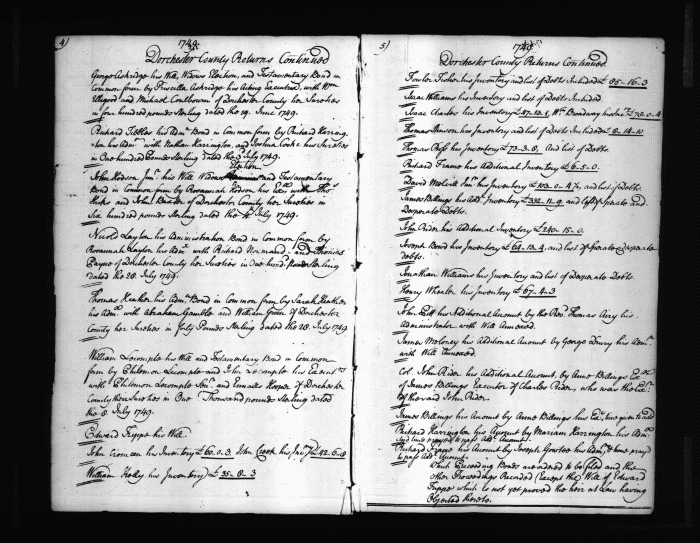 4)
1749.
Dorchester County Returns Continued
George his Will, Widows Election, and Testamentary Bond in
Common form by Priscilla his Acting Executrix, with Wm
and Michael of Dorchester County her Sureties
in four hundred pounds Sterling dated the 19. June 1749.
Richard Tibbles his Adm: Bond in Common form by Richard
his Adm: with Nathan Harrington, and Joshua Cook his Sureties
in One hundred Pounds Sterling dated the July 1749.
Election
John Hodson Junr. his Will Widows and Testamentary
Bond in Common form by Rosannah Hodson his Exx with
and John of Dorchester County her Sureties in
Six hundred pounds Sterling dated the July 1749.
Nicols Layton his Administration Bond in Common form by
Rosannah Layton his Admx with Richard and Thomas
Payne of Dorchester County her Sureties in One hund: pounds Sterling
dated the 20. July 1749.
Thomas his Adm: Bond in Common form by Sarah
his Admx with Abraham Gamble and William Green of Dorchester
County her Sureties in forty Pounds Sterling dated the 20. July 1749
William Lecompte his Will and Testamentary Bond in Common
form by Philemon Lecompte and John Lecompte his Executrs.
with Philemon Lecompte Senr. and Ennalls Hooper of Dorchester
County their Sureties in One Thousand pounds Sterling dated
the 8 July 1749.
Edward Trippe his Will.
John his Inventory £60.0.3. John Cook his Inv: £42.6.8
William Kelly his Inventory £35-8-3
5)
1749.
Dorchester County Returns Continued
Fowler his Inventory and list of Debts Included £85-16.3
Isaac Williams his Inventory and list of Debts Included
Isaac Charles his Inventory £47.13.1, Wm. Broadway his Inv: £70.0.4
Thomas his Inventory and list of Debts Included £8-14-10
Thomas his Inventory £73.3.8, And list of Debts.
Richard Frame his Additional Inventory £6.5.0.
David Melvill Senr. his Inventory £103.0.4½, and list of Debts
James Billings his Add: Inventory £332.11.9 and list of Sperate and
Desperate Debts.
John Rider his Additional Inventory £240.15.0.
Joseph Bond his Inventory £64.13.4. and list of Sperate & Desperate
debts.
Jonathan Williams his Inventory and list of Desperate Debts.
Henry Wheeler his Inventory £67-4-3
John his Additional Account by the Revd. Thomas Airy his
Administrator with Will Annexed.
James Moloney his Additional Account by George his Admr.
with Will Annexed.
Col. John Rider his Additional Account, by Anne Billings Exx
of James Billings Executor of Charles Rider, who was the Exr.
of the said John Rider.
James Billings his Account by Anne Billings his Exx, time given to add
Richard Harrington his Account by Mariam Harrington his Admx
And time prayed to pass Add: Account.
Richard his Account by Joseph his Adm: & time prayd
to pass Add: Account.
Which Preceeding Bonds are ordered to be filed and the
other Proceedings Recorded Except the Will of Edward
Trippe which is not yet proved the heir at Law having
Objected thereto.